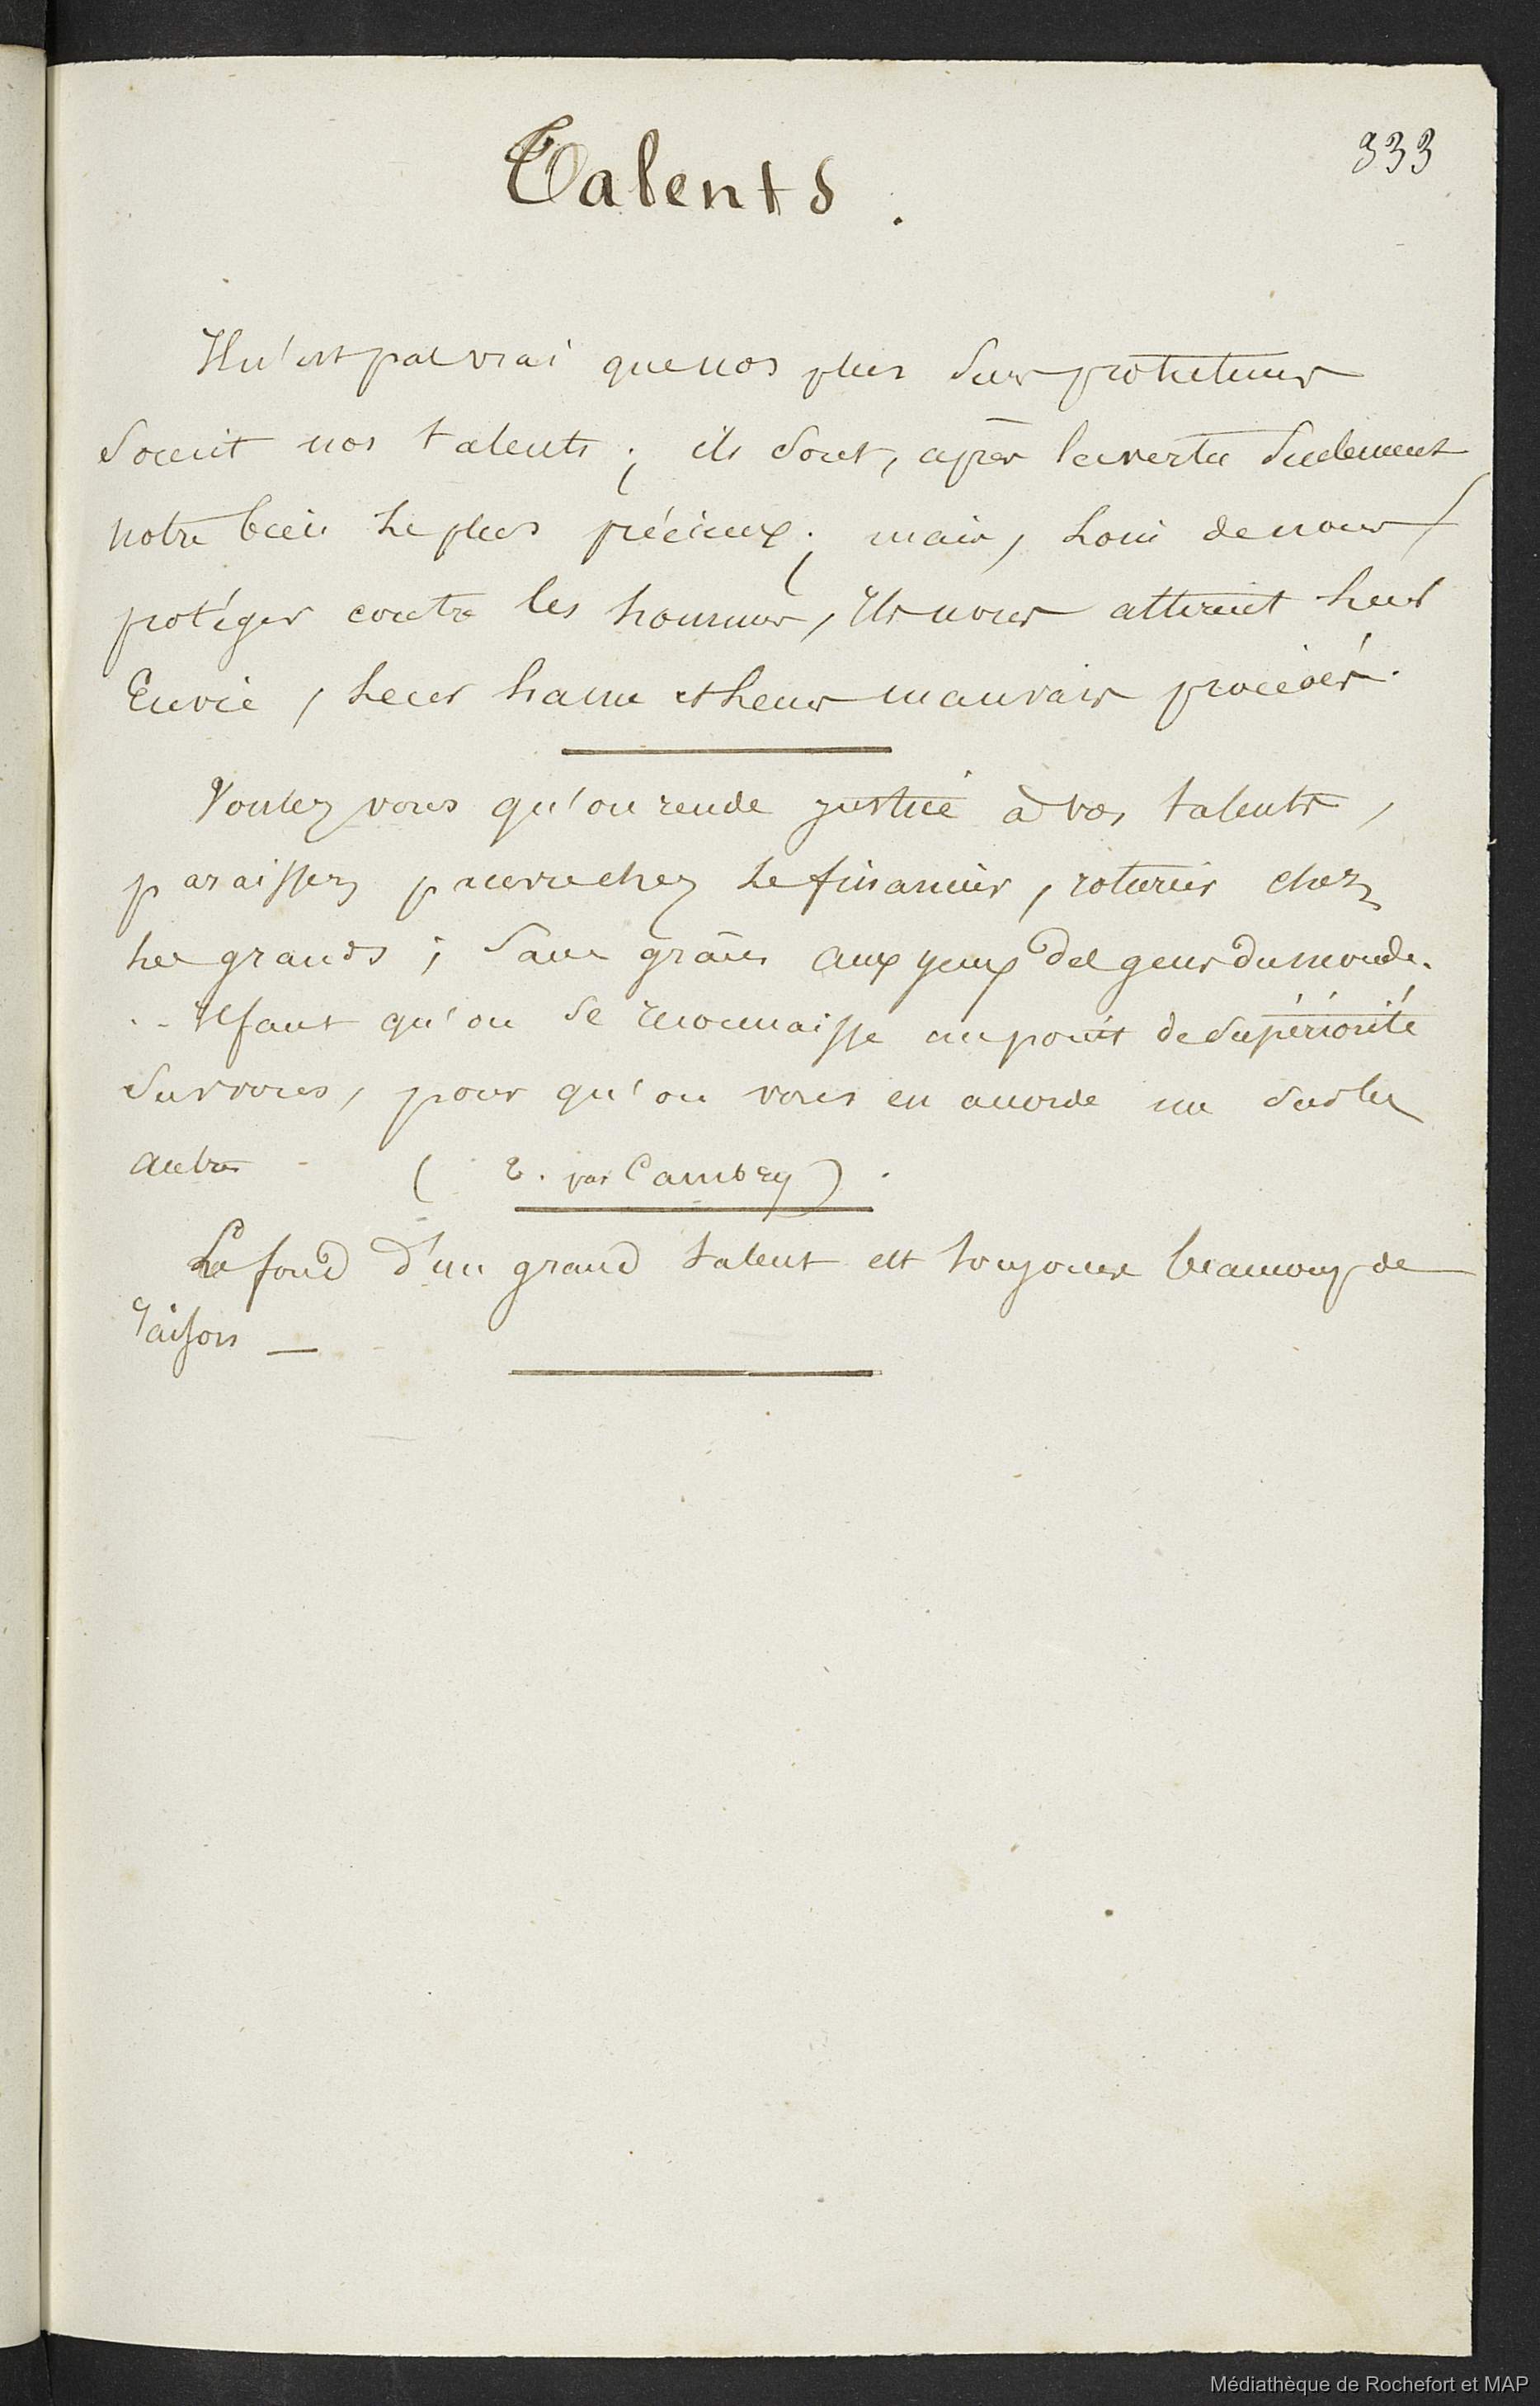 333
Talents.
Il n'est pas vrai que nos plus surs protecteurs
soient nos talents ; ils sont, après la vertu seulement
notre bien le plus précieux ; mais, loin de nous
protéger contre les hommes, ils nous attirent leur
Envie, leur haine et leurs mauvais procédés.
Voulez vous qu'on rende justice à vos talents,
paraissez pauvre chez le financier, roturier chez
les grands ; sans grâces aux yeux des gens du monde.
.. Il faut qu'on se reconnaisse un point de supériorité
sur vous, pour qu'on vous en accorde un sur les
autres (T. par Cambry).
Le fond d'un grand talent est toujours beaucoup de
raison —
Médiathèque de Rochefort et MAP